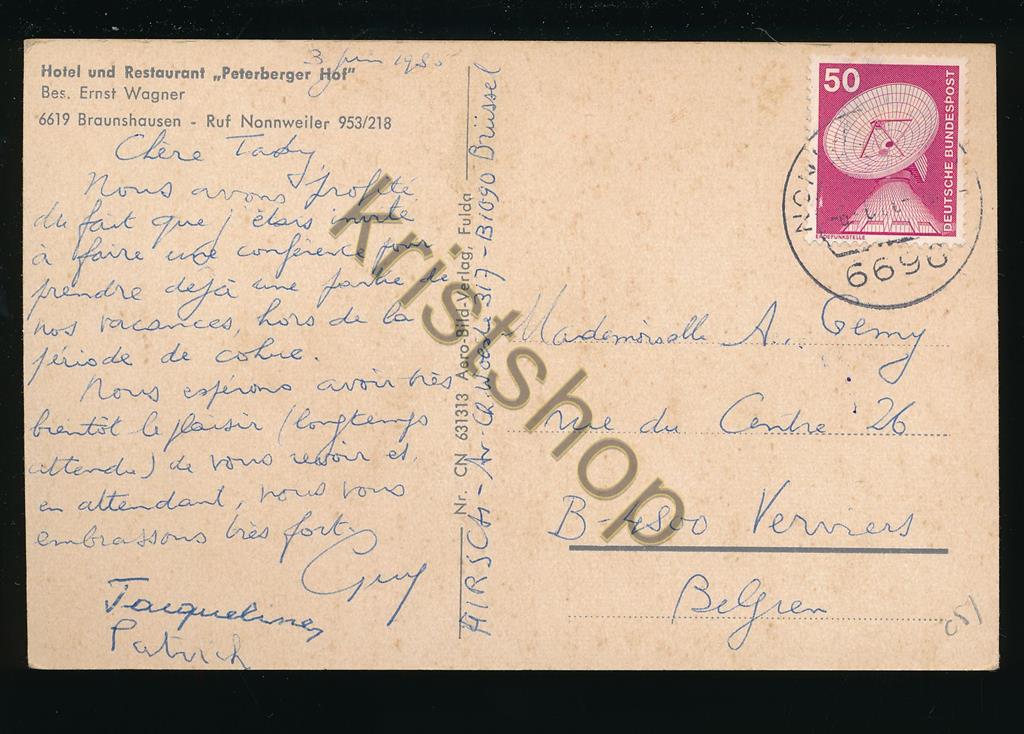 3 juin 198
Hotel und Restaurant „Peterberger Hof"
Bes. Ernst Wagner
6619 Braunshausen - Ruf Nonnweiler 953/218
Chère Taty,
Nous avons profité
du fait que j'étais invité
à faire une conférence pour
prendre déjà une partie de
nos vacances, hors de la
période de cohue.
Nous espérons avoir très
bientôt le plaisir (longtemps
attendu) de vous revoir et,
en attendant, nous vous
embrassons très fort.
Guy
Jacqueline
Patrick
Nr. CN 631313 Aero-Bild-Verlag, Fulda
HIRSCH - Av Ch. Woeste 317 - B1090 Brüssel
50
DEUTSCHE BUNDESPOST
ERDEFUNKSTELLE
NONN
6690
Mademoiselle A. Remy
rue du Centre 26
B-4800 Verviers
Belgien
Kristshop